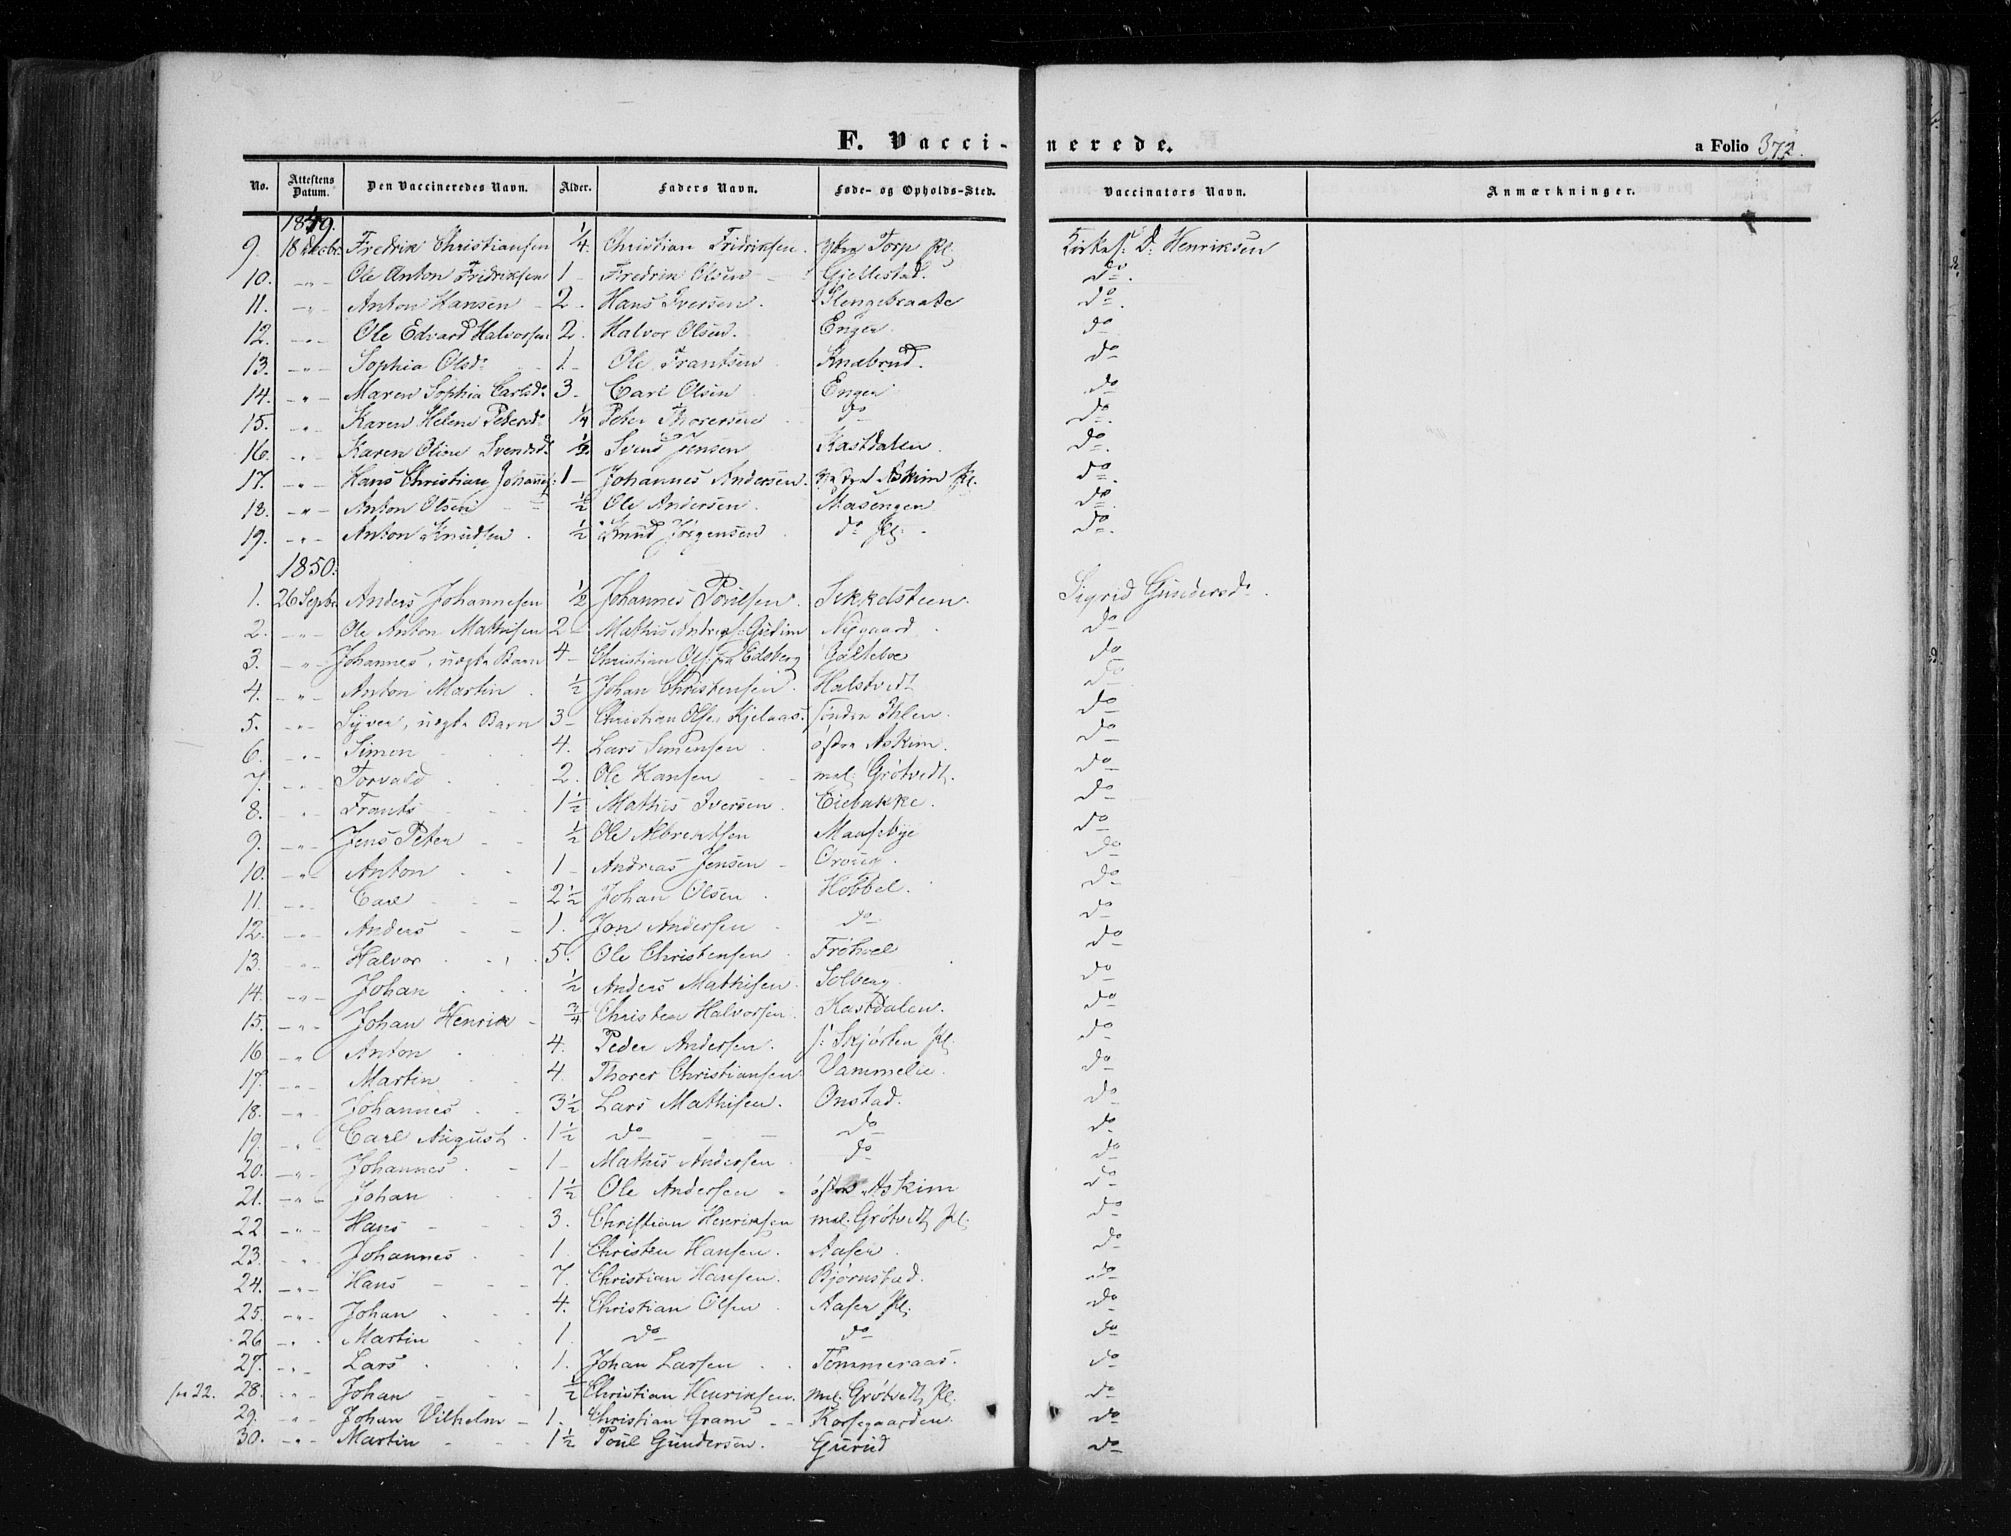 F. Vaccinerede. a Folio 372.
No. Attestens Datum. Den Vaccineredes Navn. Alder. Faders Navn. Føde- og Opholds-Sted. Vaccinators Navn. Anmærkninger.
1849.
9. 18 Fredrik Christiansen 1/4 Christian Fridriksen. Torp Pl. D: Henriksen
10. -"- Ole Anton Fridriksen 1 - Fredrik Olsen - Gjellestad. do
11. -"- Anton Hansen - 2 - Hans Iversen. Slengebraate do
12. -"- Ole Edvard Halvorsen 2. Halvor Olsen. Enger do
13. -"- Sophia Olsd: 1 - Ole Frantsen Knabrud. do
14. -"- Maren Sophia Carlsd: 3. Carl Olsen Enger do
15. " Karen Helene Pedersd: 1/4 Peter Thoresen do do
16. " Karen Oline Svendsd: 1/2 Svend Jensen Kastdalen do
17. -"- Hans Christian 1 - Johannes Andersen. Askim Pl. do
18. -"- Anton Olsen 1/2 Ole Andersen. Masengen do
19. -"- Anton Knudsen. 1/2 Knud Jørgensen do Pl. do
1850.
1. 26 Septbr Anders Johannesen 1/2 Johannes Poulsen. Sekkelsteen. Sigrid Gundersd:
2. -"- Ole Anton Mathisen 2 - Mathis Nygaard. do
3. -"- Johannes, uægte Barn 4 - Christian Ols: fra Edsberg Galteboe do
4. -"- Anton Martin. 1/2 Johan Christensen. Halstvedt do
5. -"- Syver, uægte Barn 3 - Christian Olsen Kjelaas. søndre Ihlen. do
6. " Simen 4. Lars Simensen østre Askim. do
7. " Torvald 2. Ole Hansen mel: Grøtvedt. do
8. " Frants 1 1/2 Mathis Iversen. Eiebakke. do
9. -"- Jens Peter 1/2 Ole Albrektsen Maasebye do
10. -"- Anton 1 - Andreas Jensen - do
11. -"- Carl 2 1/2 Johan Olsen Hobbel. do
12. -"- Anders 1. Jon Andersen do do
13. " Halvor 5. Ole Christensen Frøhvel do
14. -"- Johan 1/2 Anders Mathisen. Solberg do
15. -"- Johan Henrik - 3/4 Christen Halvorsen. Kastdalen. do
16. -"- Anton 4. Peder Andersen. s: Skjørten Pl: do
17. -"- Martin 4. Thorer Christiansen Vammelie. do
18. -"- Johannes 3 1/2 Lars Mathisen. Onstad. do
19. " Carl August. 1 1/2 do do do
20. -"- Johannes. 1 - Mathis Andersen do do
21. -"- Johan 1 1/2 Ole Andersen østre Askim do
22. " Hans 3. Christian Henriksen mel: Grøtvedt Pl: do
23. " Johannes 1. Christen Hansen. Aaser. do
24. -"- Hans 7. Christian Hansen. Bjørnstad. do
25. -"- Johan 4. Christian Olsen Aaser Pl: do
26 -"- Martin 1. do do do
27. -"- Lars 1. Johan Larsen Tømmeraas. do
22. 28. " Johan 1/2 Christian Henriksen. mel: Grøtvedt Pl: do
29. " Johan Vilhelm - 1. Christian Gram - - Korsegaarden. do
30. -"- Martin 1 1/2 Poul Gundersen. Gurud do